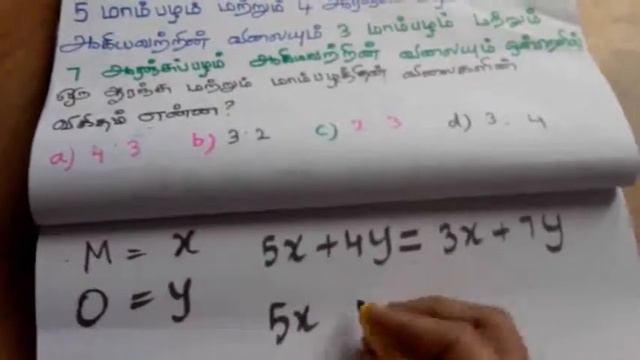 5 மாம்பழம் மற்றும் 4
ஆகியவற்றின் விலையும் 3 மாம்பழம் மற்றும்
7 ஆரஞ்சுப்பழம் ஆகியவற்றின் விலையும் ஒன்றெனில்
ஒரு ஆரஞ்சு மற்றும் மாம்பழத்தின் விலைகளின்
விகிதம் என்ன?
a) 4:3 b) 3:2 c) 2 3 d) 3: 4
M = x 5x+4y=3x+7y
O = y
5x